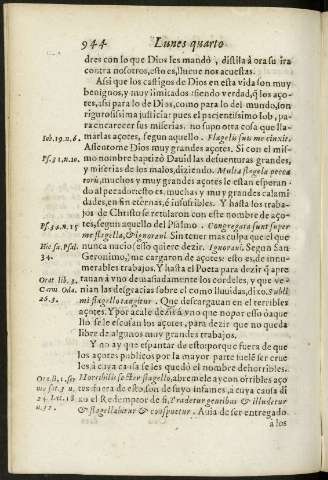 944 Lunes quarto
dres con lo que Dios les mandó, distila aora su ira
contra nosotros, esto es, llueue nos acuestas.
Assi que los castigos de Dios en esta vida son muy
benignos, y muy limitados: siendo verdad, q̃ los aço-
tes, assi para lo de Dios, como para lo del mundo, son
rigurosissima justicia: pues el pacientissimo Iob, pa-
ra encarecer sus miserias, no supo otra cosa que lla-
Iob. 19. n. 6. marlas açotes, segun aquello. Flagelis suis me cinxit.
Assentome Dios muy grandes açotes. Si con el mis-
Ps. 31. n. 10. mo nombre baptizò Dauid las desuenturas grandes,
y miserias de los malos, diziendo. Multa flagela pecca
toris, muchos y muy grandes açotes le estan esperan-
do al pecador: esto es, muchas y muy grandes calami
dades, en fin eternas, è insufribles. Y hasta los traba-
jos de Christo se rotularon con este nombre de aço-
Ps. 34. n. 15 tes, segun aquello del Psalmo. Congregata sunt super
me flagella, & ignoraui. Sin tener mas culpa que el que
Hic. sa. Psal. nunca nacio: esso quiere dezir. Ignoraui. Segun San
34. Geronimo, me cargaron de açotes: esto es, de innu-
merables trabajos. Y hasta el Poeta para dezir q̃ apre
Orat. lib. 3. tauan à vno demasiadamente los cordeles, y que ve-
Carm. Oda. nian las desgracias sobre el como llouidas, dixo. Subli
26. 3. mi flagello tangitur. Que descargauan en el terribles
açotes. Y por acà le dezis à vno que nopor esso òaquello
se le escusan los açotes, para dezir que no queda
libre de algunos muy grandes trabajos.
Y no ay que espantar de esto: porque fuera de que
los açotes publicos por la mayor parte suelē ser crue
les, à cuya causa se les quedó el nombre de horribles.
Horribili secter flagello, abreme le ay con orribles aço
tes: fuera de esso, son de suyo infames, à cuya causa di
24. Luc. 18. xo el Redemptor de si, Tradetur gentibus & illudetur
n. 32. & flagellabitur & conspuetur. Auia de ser entregado
a los